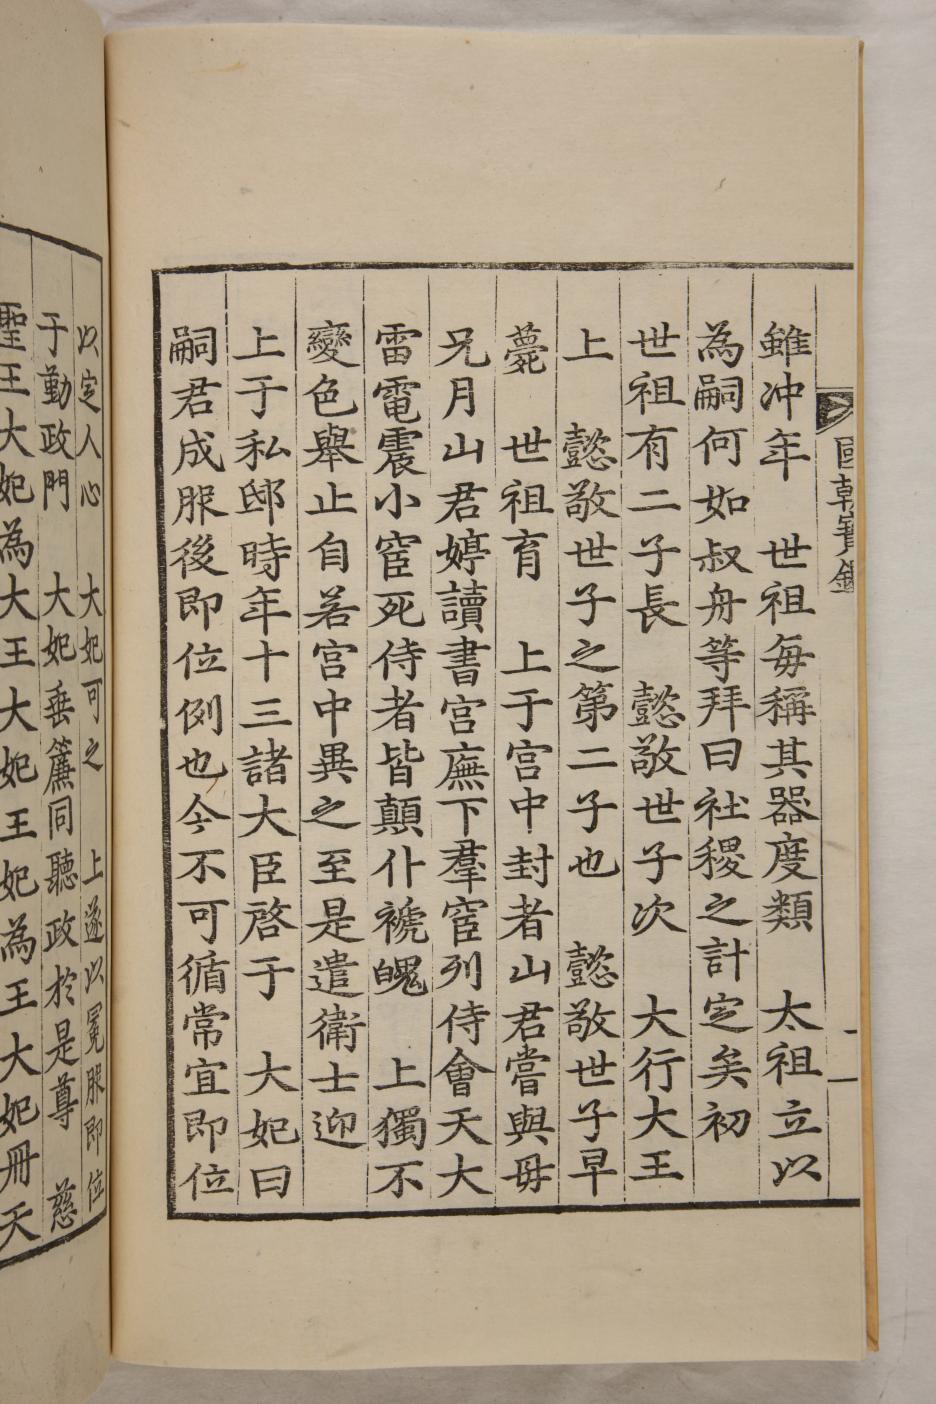 國朝寶鑑
雖冲年　世祖每稱其器度類　太祖立以
為嗣何如叔舟等拜曰社稷之計定矣初
世祖有二子長　懿敬世子次　大行大王
上　懿敬世子之第二子也　懿敬世子早
薨　世祖育　上于宮中封者山君嘗與毋
兄月山君婷讀書宮廡下羣宦列侍會天大
雷電震小宦死侍者皆顛仆褫魄　上獨不
變色舉止自若宮中異之至是遣衛士迎
上于私邸時年十三諸大臣啓于　大妃曰
嗣君成服後即位例也今不可循常宜即位
以定人心　大妃可之　上遂以冕服即位
于勤政門　大妃垂簾同聽政於是尊　慈
聖王大妃為大王大妃王妃為王大妃冊天